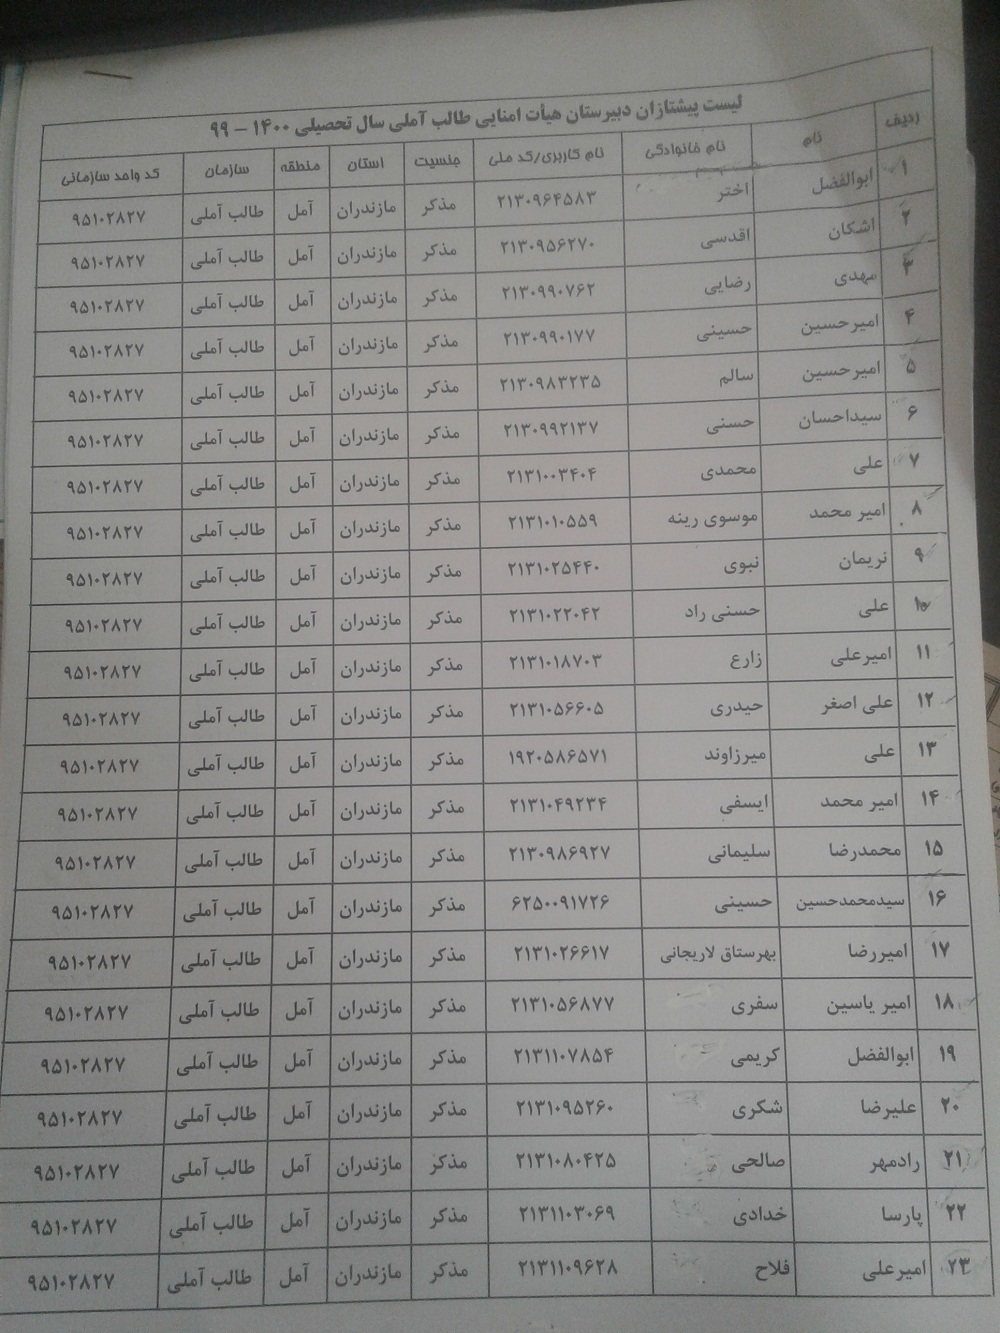 لیست پیشتازان دبیرستان هیأت امنایی طالب آملی سال تحصیلی ۱۴۰۰ – ۹۹
ردیف نام نام خانوادگی نام کاربری/کد ملی جنسیت استان منطقه سازمان کد واحد سازمانی
۱ ابوالفضل اختر ۲۱۳۰۹۶۴۵۸۳ مذکر مازندران آمل طالب آملی ۹۵۱۰۲۸۲۷
۲ اشکان اقدسی ۲۱۳۰۹۵۶۲۷۰ مذکر مازندران آمل طالب آملی ۹۵۱۰۲۸۲۷
۳ مهدی رضایی ۲۱۳۰۹۹۰۷۶۲ مذکر مازندران آمل طالب آملی ۹۵۱۰۲۸۲۷
۴ امیرحسین حسینی ۲۱۳۰۹۹۰۱۷۷ مذکر مازندران آمل طالب آملی ۹۵۱۰۲۸۲۷
۵ امیرحسین سالم ۲۱۳۰۹۸۳۲۳۵ مذکر مازندران آمل طالب آملی ۹۵۱۰۲۸۲۷
۶ سیداحسان حسنی ۲۱۳۰۹۹۲۱۳۷ مذکر مازندران آمل طالب آملی ۹۵۱۰۲۸۲۷
۷ علی محمدی ۲۱۳۱۰۰۳۴۰۴ مذکر مازندران آمل طالب آملی ۹۵۱۰۲۸۲۷
۸ امیر محمد موسوی رینه ۲۱۳۱۰۱۰۵۵۹ مذکر مازندران آمل طالب آملی ۹۵۱۰۲۸۲۷
۹ نریمان نبوی ۲۱۳۱۰۲۵۴۴۰ مذکر مازندران آمل طالب آملی ۹۵۱۰۲۸۲۷
۱۰ علی حسنی راد ۲۱۳۱۰۲۲۰۴۲ مذکر مازندران آمل طالب آملی ۹۵۱۰۲۸۲۷
۱۱ امیرعلی زارع ۲۱۳۱۰۱۸۷۰۳ مذکر مازندران آمل طالب آملی ۹۵۱۰۲۸۲۷
۱۲ علی اصغر حیدری ۲۱۳۱۰۵۶۶۰۵ مذکر مازندران آمل طالب آملی ۹۵۱۰۲۸۲۷
۱۳ علی میرزاوند ۱۹۲۰۵۸۶۵۷۱ مذکر مازندران آمل طالب آملی ۹۵۱۰۲۸۲۷
۱۴ امیر محمد ایسفی ۲۱۳۱۰۴۹۲۳۴ مذکر مازندران آمل طالب آملی ۹۵۱۰۲۸۲۷
۱۵ محمدرضا سلیمانی ۲۱۳۰۹۸۶۹۲۷ مذکر مازندران آمل طالب آملی ۹۵۱۰۲۸۲۷
۱۶ سیدمحمدحسین حسینی ۶۲۵۰۰۹۱۷۲۶ مذکر مازندران آمل طالب آملی ۹۵۱۰۲۸۲۷
۱۷ امیررضا بهرستاق لاریجانی ۲۱۳۱۰۲۶۶۱۷ مذکر مازندران آمل طالب آملی ۹۵۱۰۲۸۲۷
۱۸ امیر یاسین سفری ۲۱۳۱۰۵۶۸۷۷ مذکر مازندران آمل طالب آملی ۹۵۱۰۲۸۲۷
۱۹ ابوالفضل کریمی ۲۱۳۱۱۰۷۸۵۴ مذکر مازندران آمل طالب آملی ۹۵۱۰۲۸۲۷
۲۰ علیرضا شکری ۲۱۳۱۰۹۵۲۶۰ مذکر مازندران آمل طالب آملی ۹۵۱۰۲۸۲۷
۲۱ رادمهر صالحی ۲۱۳۱۰۸۰۴۲۵ مذکر مازندران آمل طالب آملی ۹۵۱۰۲۸۲۷
۲۲ پارسا خدادی ۲۱۳۱۱۰۳۰۶۹ مذکر مازندران آمل طالب آملی ۹۵۱۰۲۸۲۷
۲۳ امیرعلی فلاح ۲۱۳۱۱۰۹۶۲۸ مذکر مازندران آمل طالب آملی ۹۵۱۰۲۸۲۷